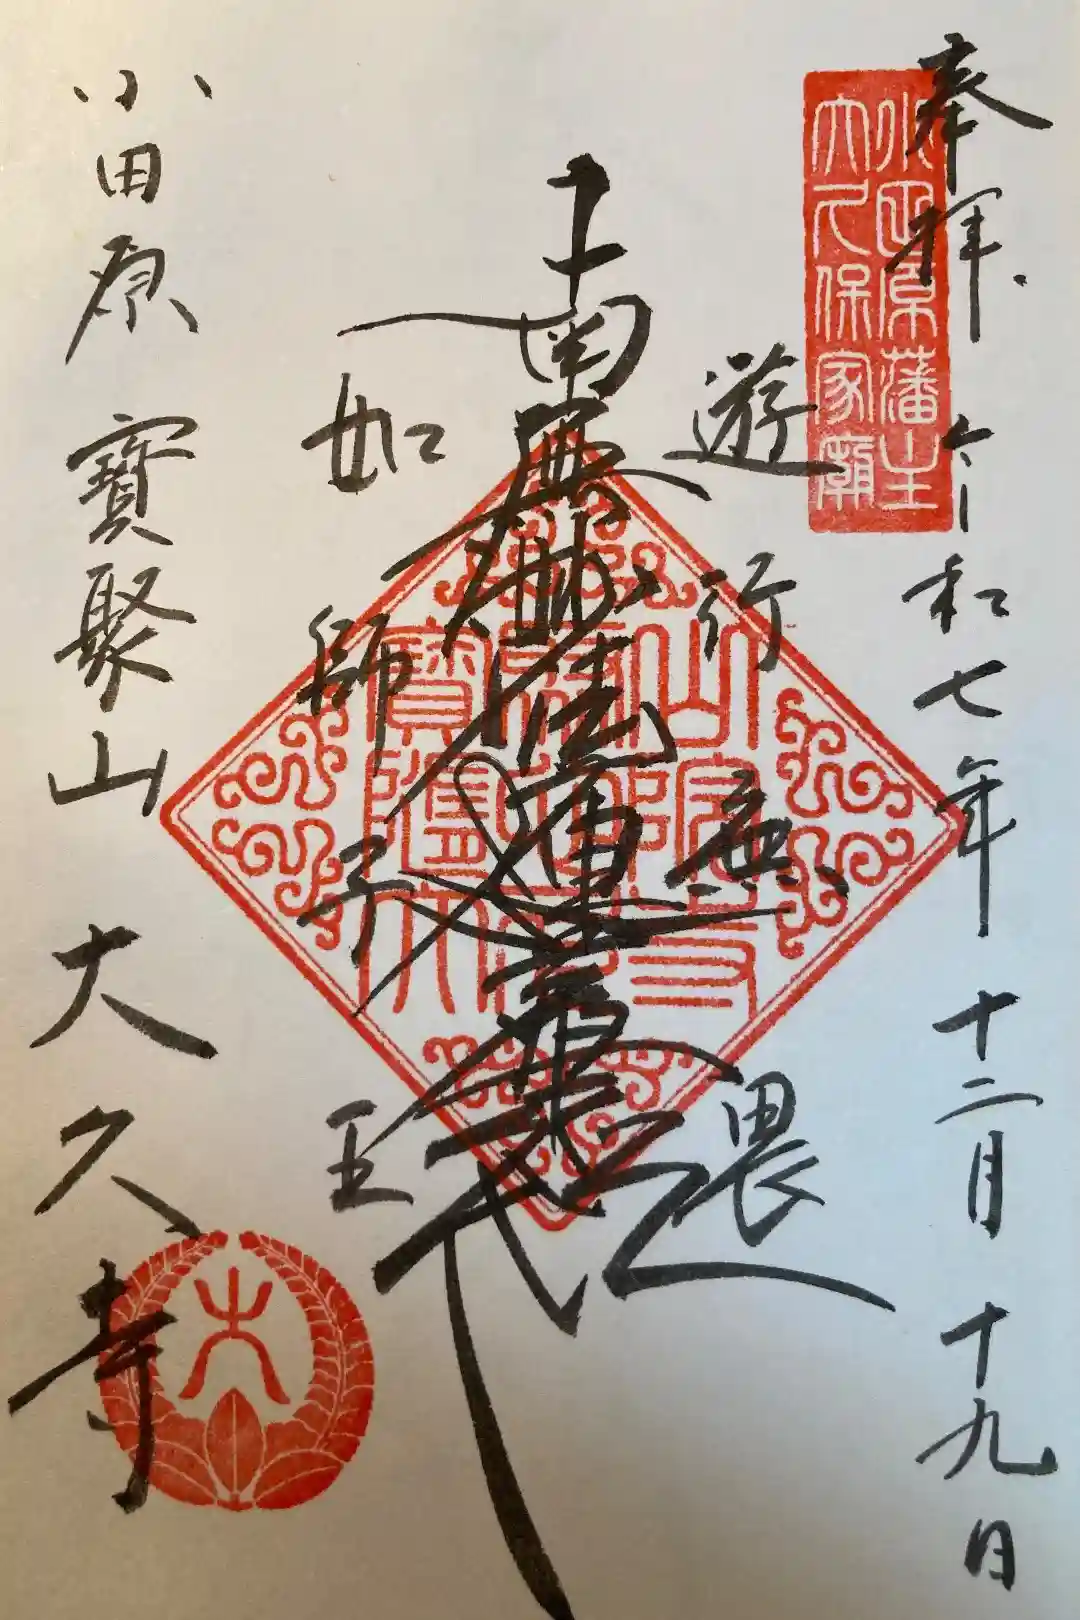 奉拝 令和七年十二月十九日
小田原藩主
大久保家廟
遊行無畏
南無妙法蓮華経
如師子王
小田原 寶聚山 大久寺
大